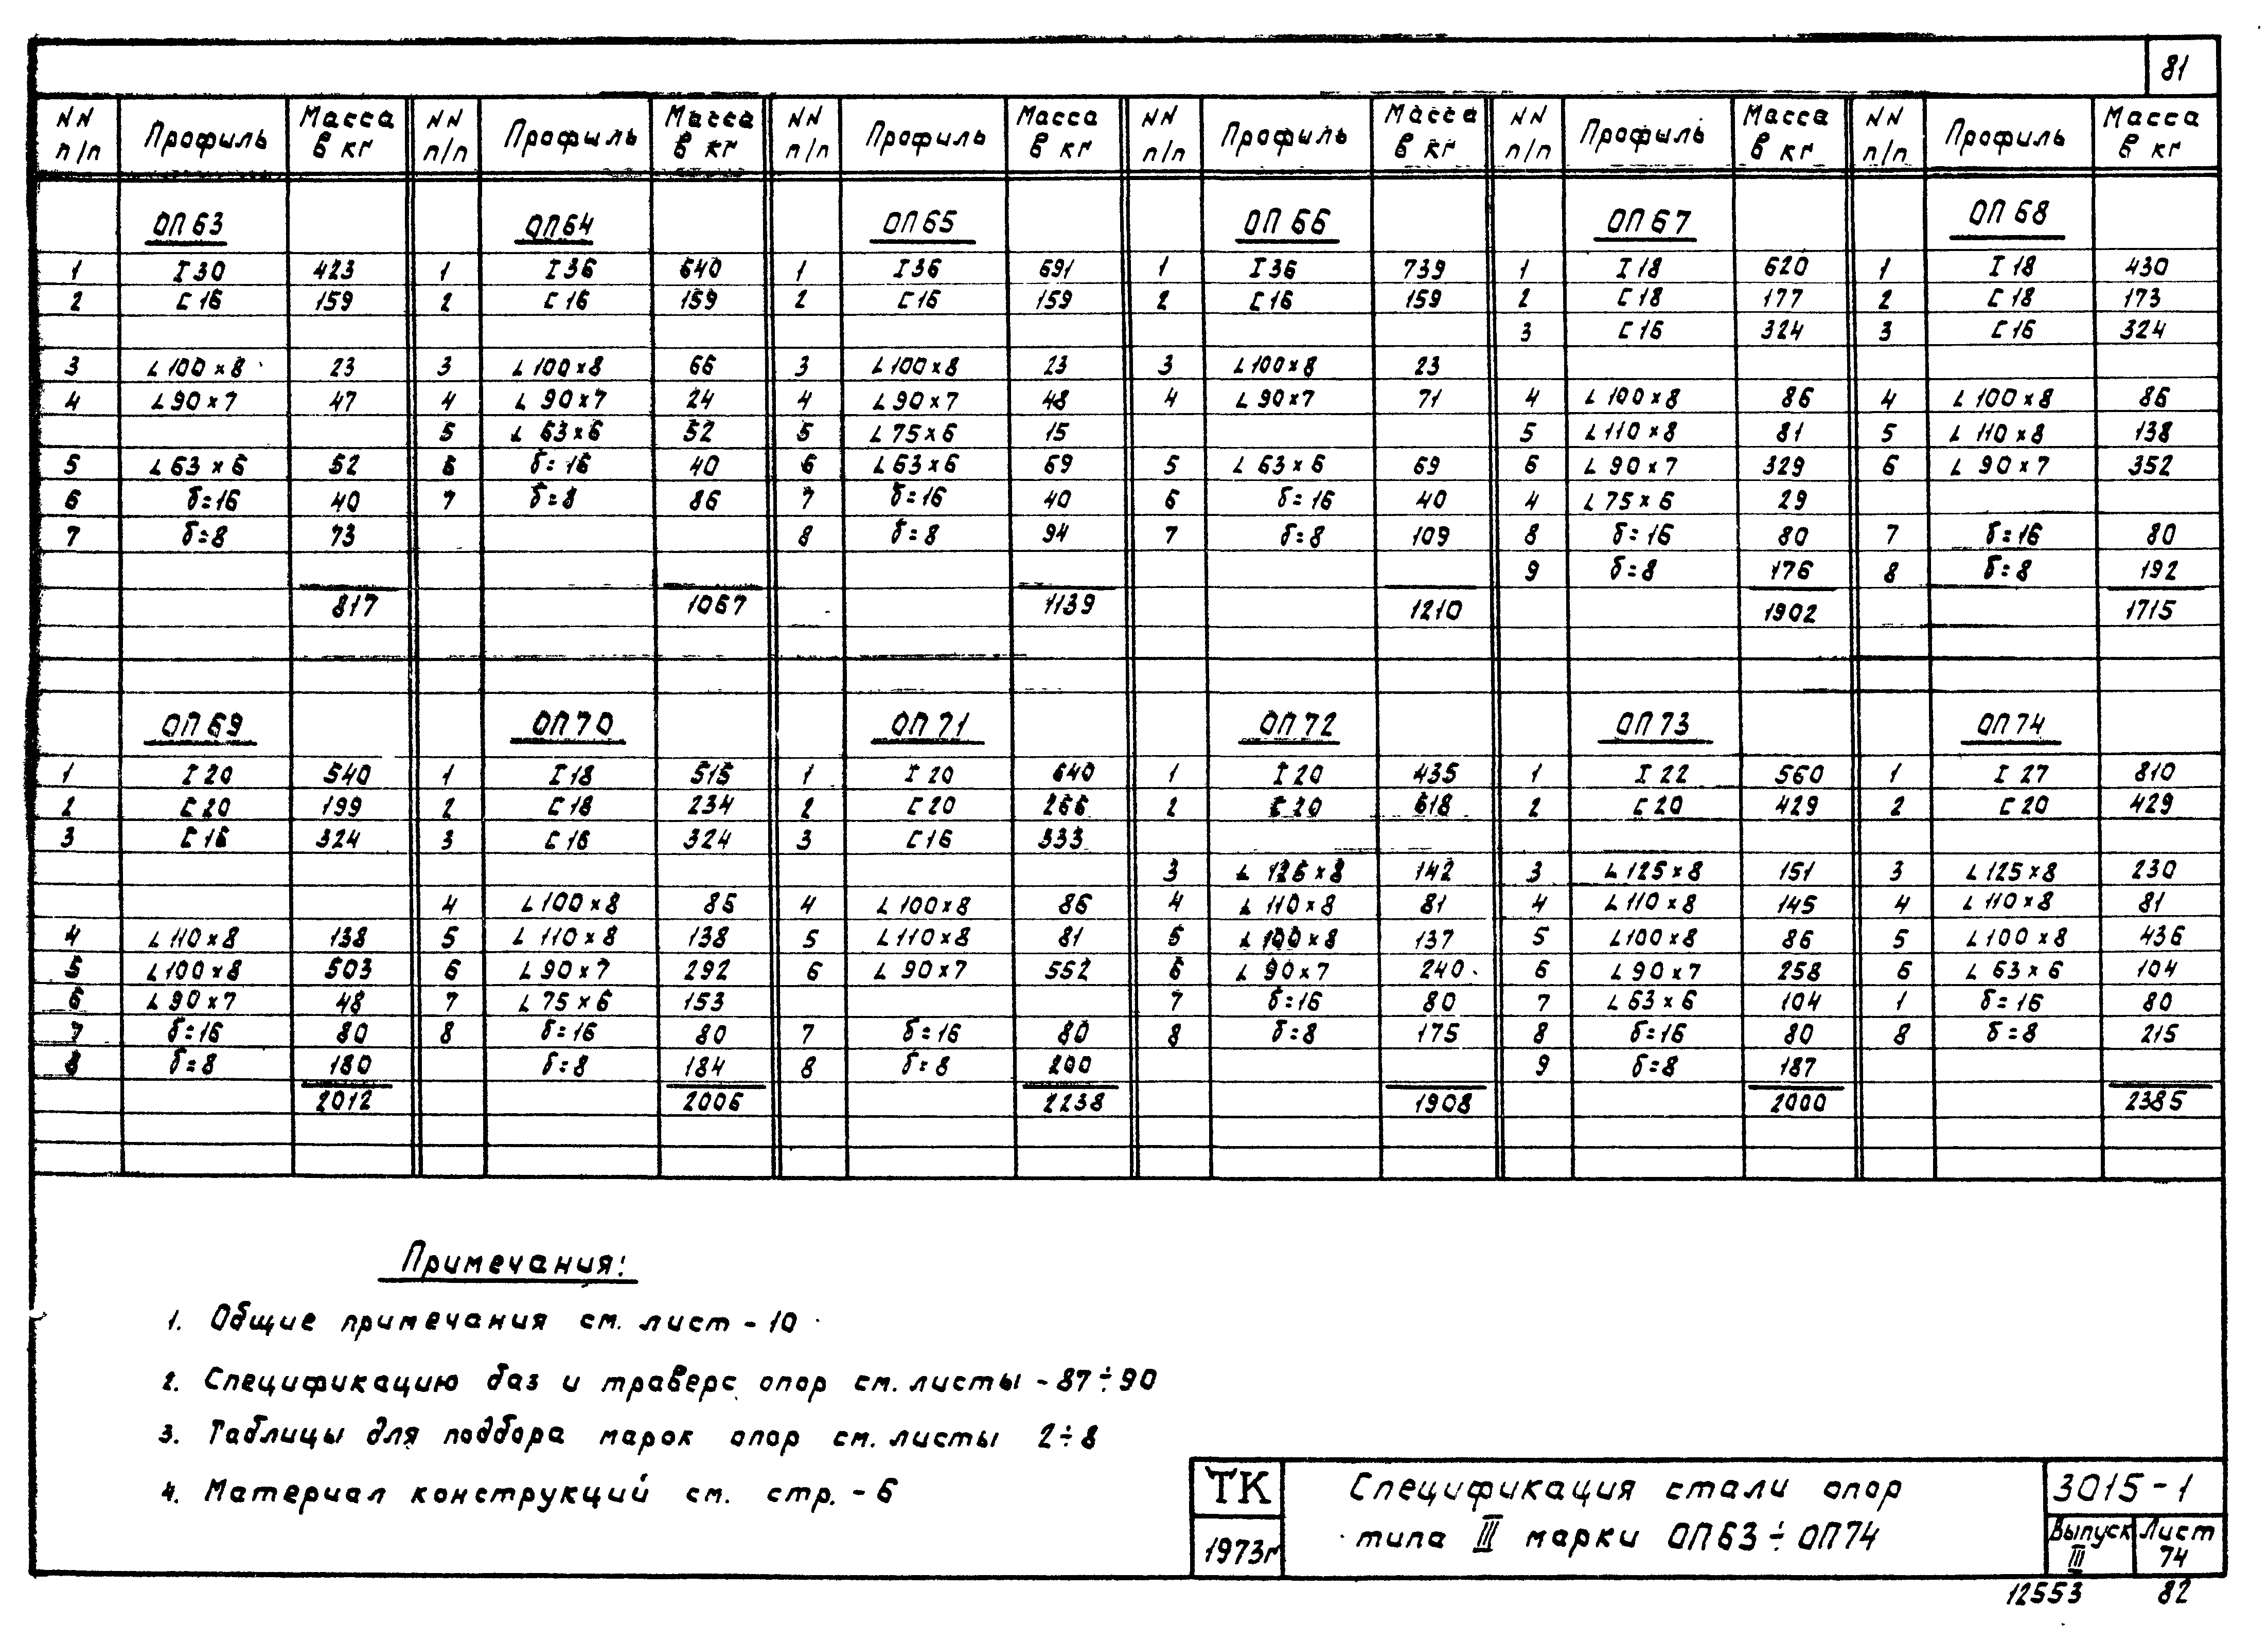 81
NN п/п Профиль Масса в кг NN п/п Профиль Масса в кг NN п/п Профиль Масса в кг NN п/п Профиль Масса в кг NN п/п Профиль Масса в кг NN п/п Профиль Масса в кг
ОП63 ОП64 ОП65 ОП66 ОП67 ОП68
1 I 30 423 1 I 36 640 1 I 36 691 1 I 36 739 1 I 18 620 1 I 18 430
2 C 16 159 2 C 16 159 2 C 16 159 2 C 16 159 2 C 18 177 2 C 18 173
3 C 16 324 3 C 16 324
3 L 100×8 23 3 L 100×8 66 3 L 100×8 23 3 L 100×8 23
4 L 90×7 47 4 L 90×7 24 4 L 90×7 48 4 L 90×7 71 4 L 100×8 86 4 L 100×8 86
5 L 63×6 52 5 L 75×6 15 5 L 110×8 81 5 L 110×8 138
5 L 63×6 52 6 δ=16 40 6 L 63×6 69 5 L 63×6 69 6 L 90×7 329 6 L 90×7 352
6 δ=16 40 7 δ=8 86 7 δ=16 40 6 δ=16 40 4 L 75×6 29
7 δ=8 73 8 δ=8 94 7 δ=8 109 8 δ=16 80 7 δ=16 80
9 δ=8 176 8 δ=8 192
817 1067 1139 1210 1902 1715
ОП69 ОП70 ОП71 ОП72 ОП73 ОП74
1 I 20 540 1 I 18 515 1 I 20 640 1 I 20 435 1 I 22 560 1 I 27 810
2 C 20 199 2 C 18 234 2 C 20 266 2 C 20 618 2 C 20 429 2 C 20 429
3 C 16 324 3 C 16 324 3 C 16 333
3 L 125×8 142 3 L 125×8 151 3 L 125×8 230
4 L 100×8 86 4 L 100×8 86 4 L 110×8 81 4 L 110×8 145 4 L 110×8 81
4 L 110×8 138 5 L 110×8 138 5 L 110×8 81 5 L 100×8 137 5 L 100×8 86 5 L 100×8 436
5 L 100×8 503 6 L 90×7 292 6 L 90×7 552 6 L 90×7 240 6 L 90×7 258 6 L 63×6 104
6 L 90×7 48 7 L 75×6 153 7 δ=16 80 7 L 63×6 104 1 δ=16 80
7 δ=16 80 8 δ=16 80 7 δ=16 80 8 δ=8 175 8 δ=16 80 8 δ=8 215
8 δ=8 180 δ=8 184 8 δ=8 200 9 δ=8 187
2012 2006 2238 1908 2000 2385
Примечания:
1. Общие примечания см. лист - 10
2. Спецификацию баз и траверс опор см. листы - 87÷90
3. Таблицы для подбора марок опор см. листы 2÷8
4. Материал конструкций см. стр. - 6
ТК
1973г
Спецификация стали опор
типа III марки ОП63÷ОП74
3015-1
Выпуск III
Лист 74
12553 82